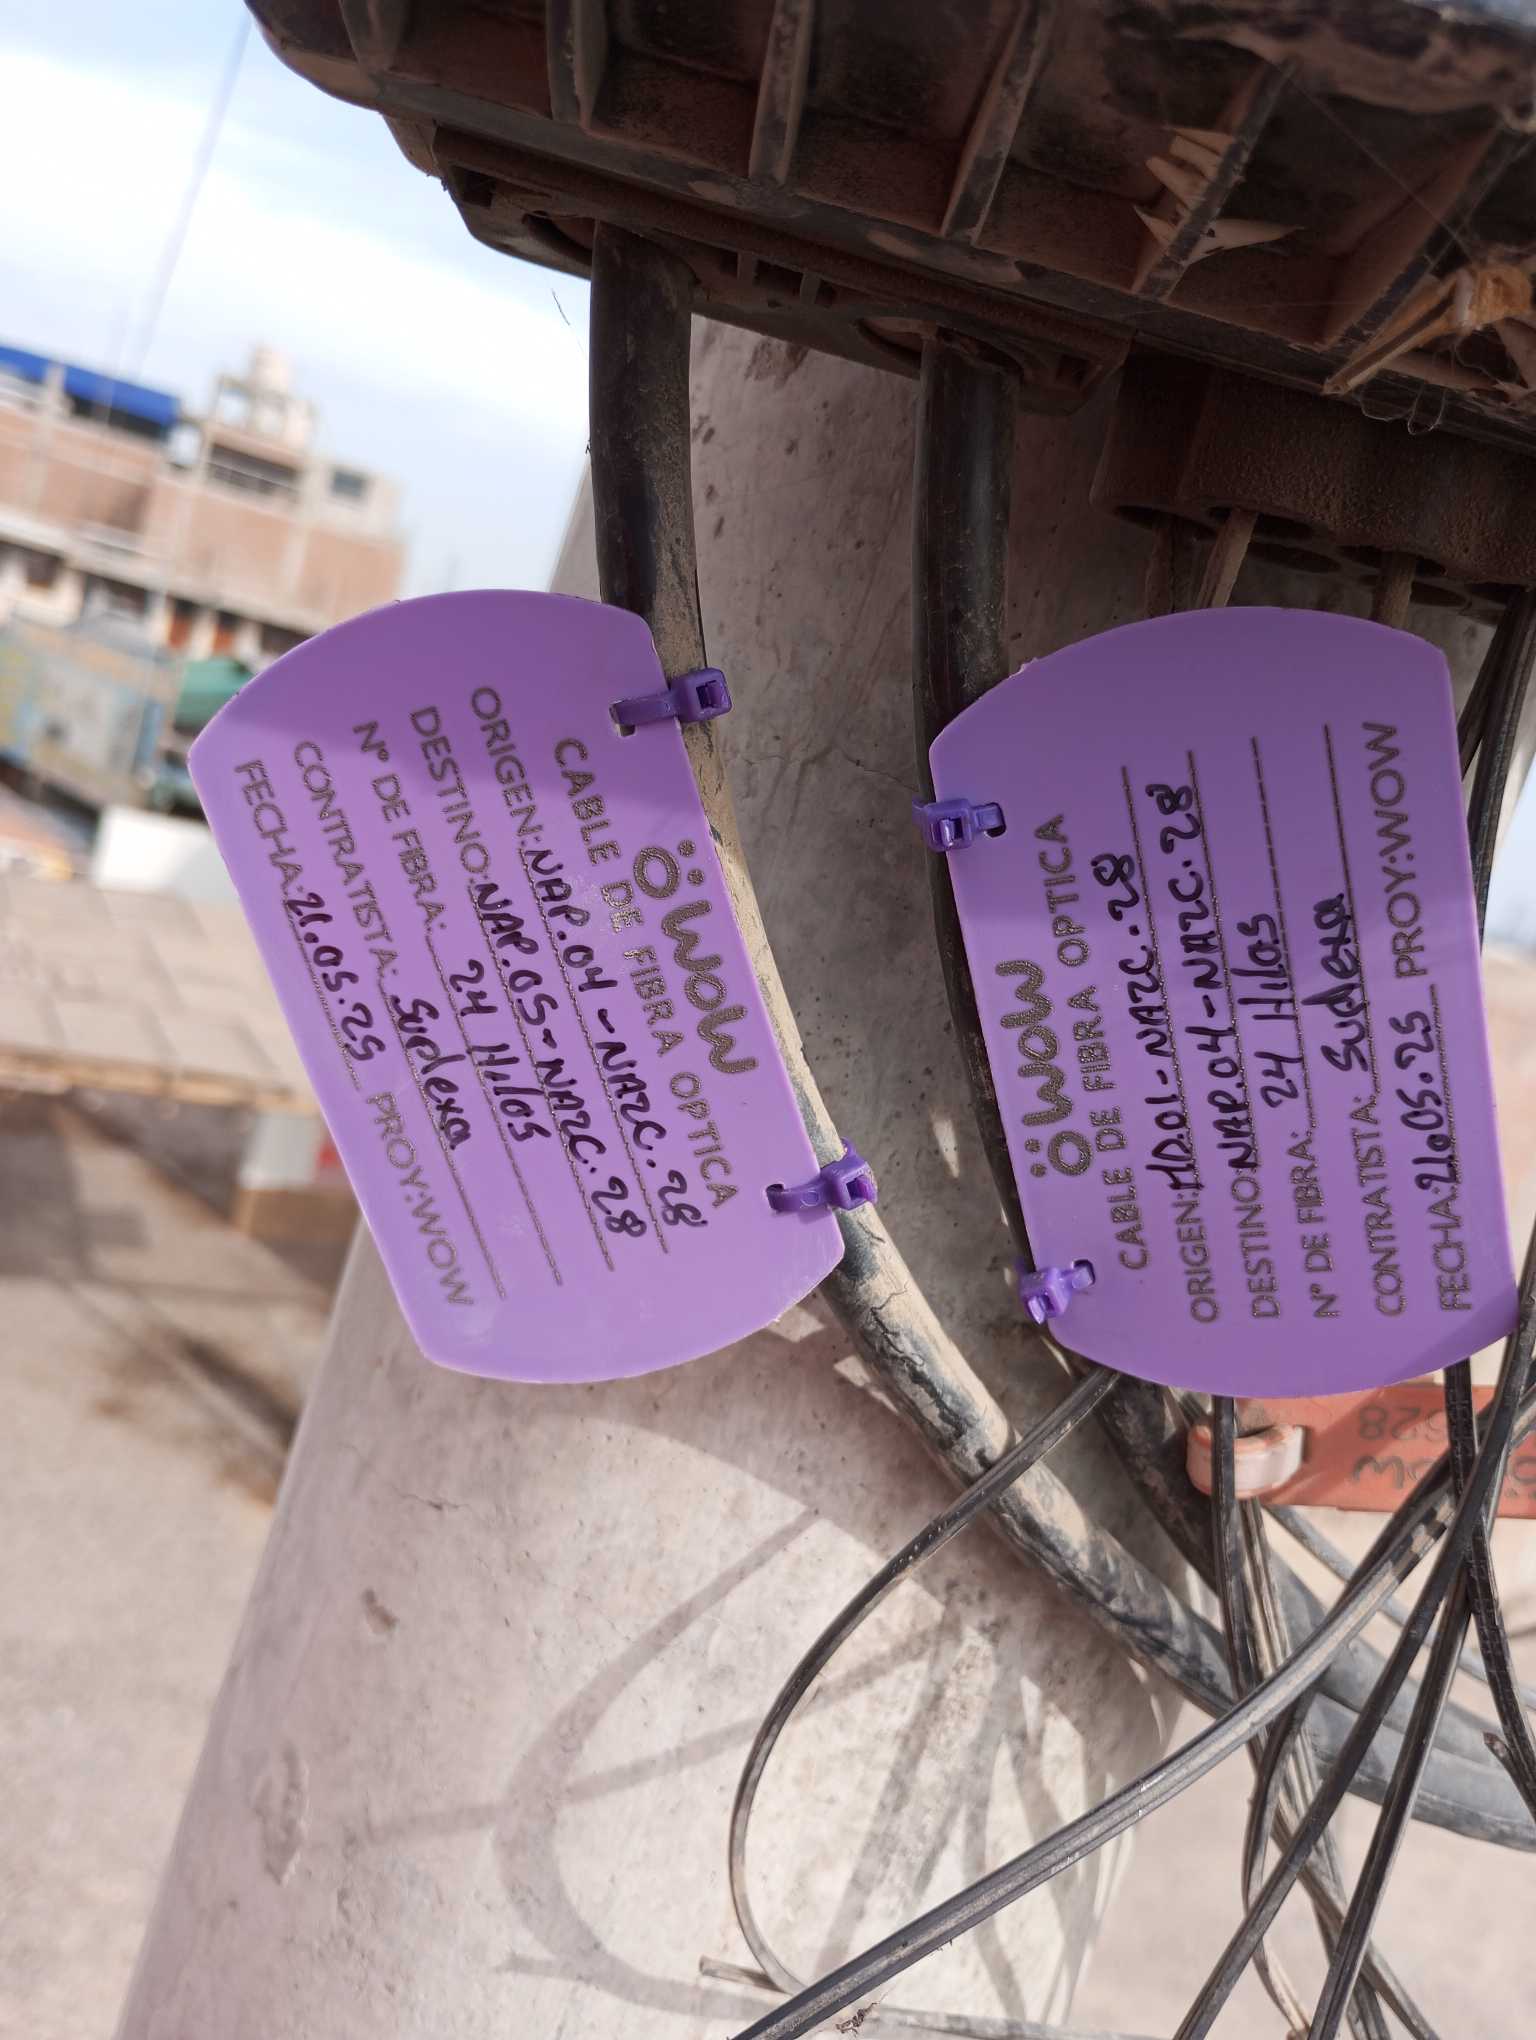 WOW
CABLE DE FIBRA OPTICA
ORIGEN: NAP.04-NAZC.28
DESTINO: NAP.05-NAZC.28
N° DE FIBRA: 24 Hilos
CONTRATISTA: Suplexa
FECHA: 21.05.25 PROY:WOW
WOW
CABLE DE FIBRA OPTICA
ORIGEN: HD.01-NAZC.28
DESTINO: NAP.04-NAZC.28
N° DE FIBRA: 24 Hilos
CONTRATISTA: Suplexa
FECHA: 21.05.25 PROY:WOW